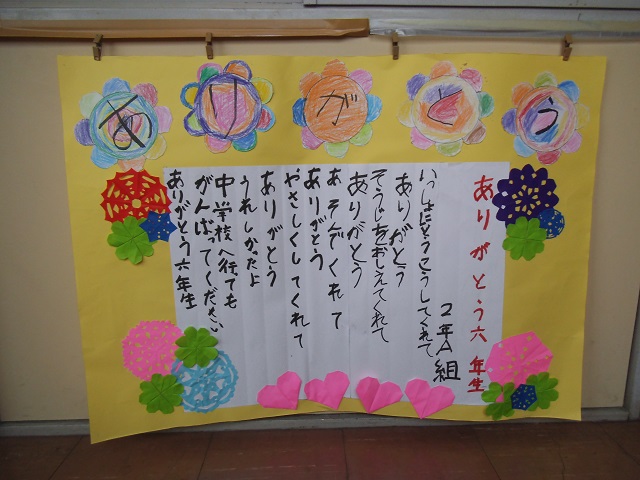 ありがとう
ありがとう六年生
2年A組
いっしょにとうこうしてくれて
ありがとう
そうじをおしえてくれて
ありがとう
あそんでくれて
ありがとう
やさしくしてくれて
ありがとう
うれしかったよ
中学校へ行ても
がんばってください
ありがとう六年生